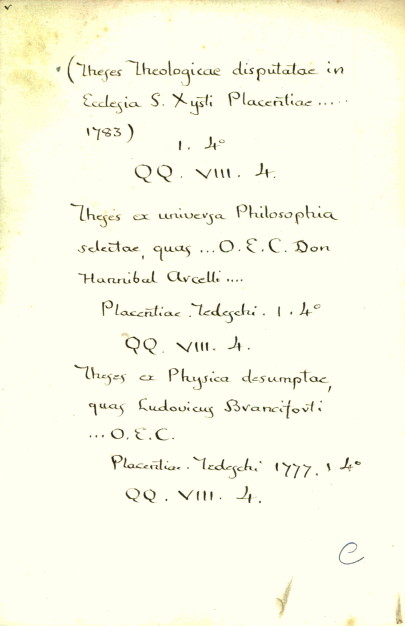 (Theses Theologicae disputatae in
Ecclesia S. Xysti Placentiae.....
1783)
1. 4°
QQ. VIII. 4.
Theses ex universa Philosophia
selectae, quas ... O. E. C. Don
Hannibal Arcelli ....
Placentiae. Tedeschi. 1. 4°
QQ. VIII. 4.
Theses ex Physica desumptae,
quas Ludovicus Branciforti
... O. E. C.
Placentiae. Tedeschi 1777. 1 4°
QQ. VIII. 4.
C